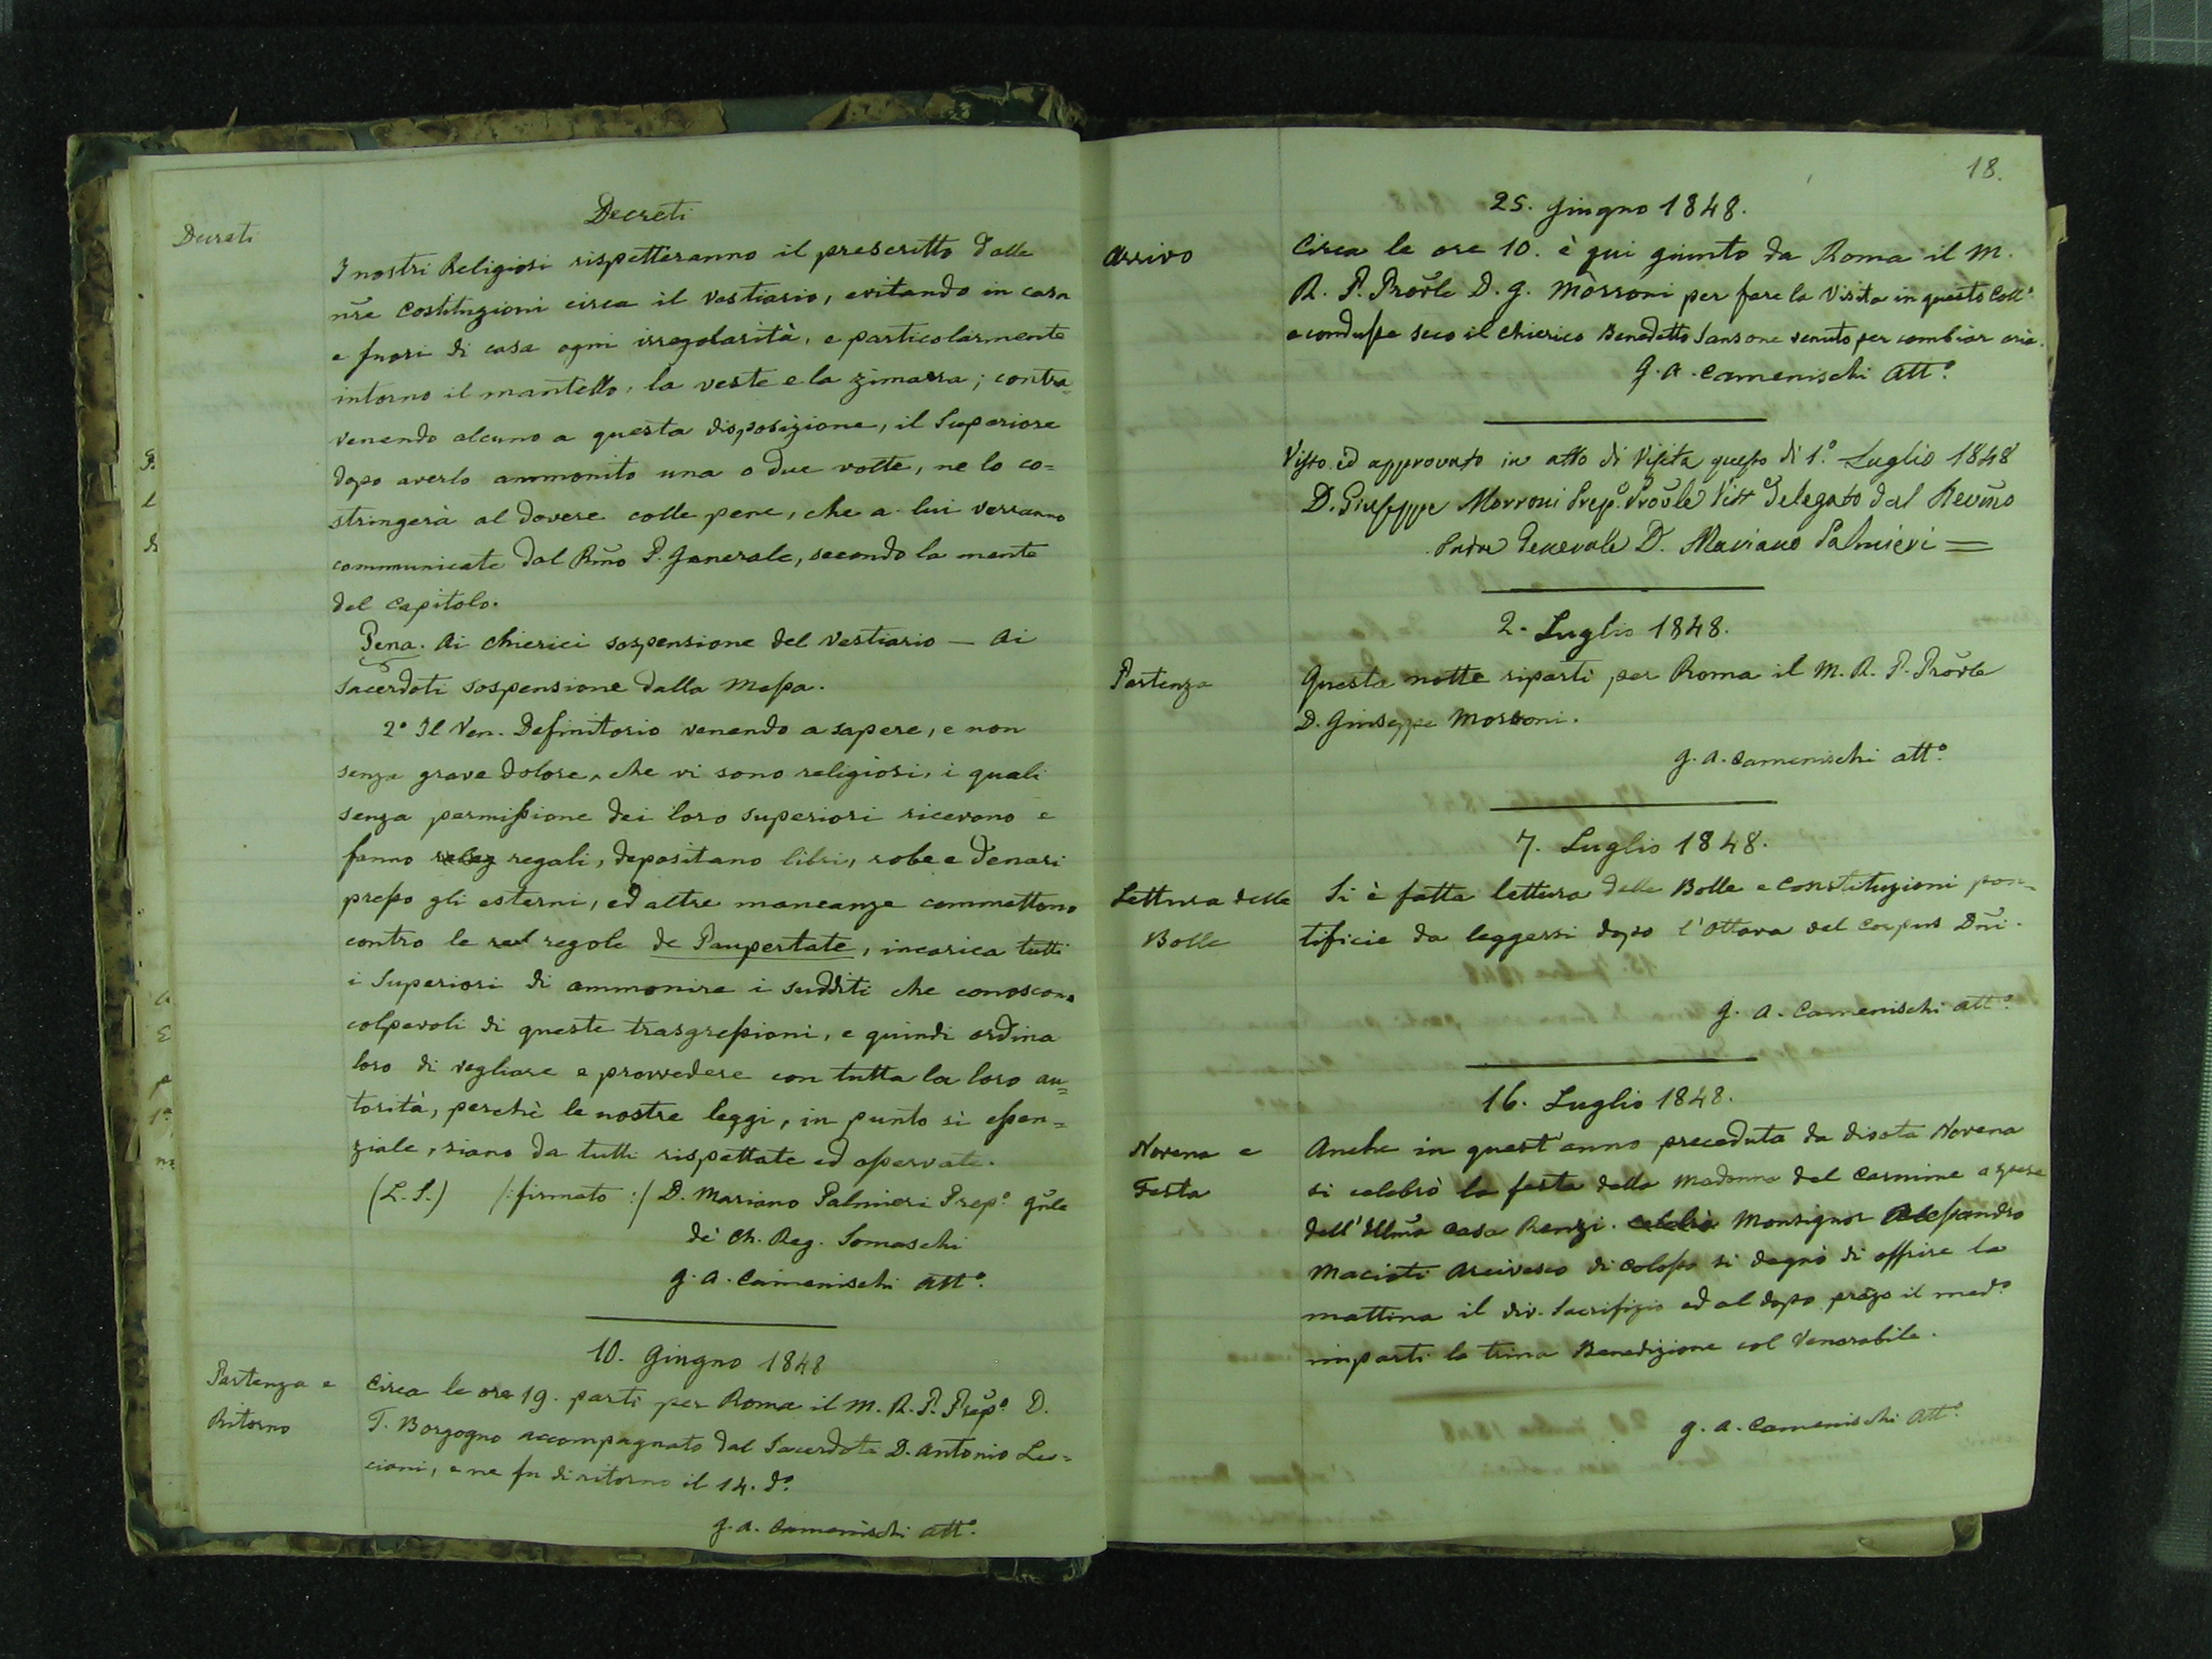 Decreti
Decreti
I nostri Religiosi rispetteranno il prescritto dalle
nr̃e Costituzioni circa il Vestiario, evitando in casa
e fuori di casa ogni irregolarità, e particolarmente
intorno il mantello, la veste e la zimarra; contra=
venendo alcuno a questa disposizione, il Superiore
dopo averlo ammonito una o due volte, ne lo co=
stringerà al dovere colle pene, che a lui verranno
communicate dal Rmo P. Generale, secondo la mente
del Capitolo.
Pena. Ai Chierici sospensione del Vestiario — Ai
Sacerdoti sospensione dalla Messa.
2° Il Ven. Definitorio venendo a sapere, e non
senza grave dolore, che vi sono religiosi, i quali
senza permissione dei loro superiori ricevono e
fanno regali, depositano libri, robe e denari
presso gli esterni, ed altre mancanze commettono
contro le regole de Paupertate, incarica tutti
i Superiori di ammonire i sudditi che conoscono
colpevoli di queste trasgressioni, e quindi ordina
loro di vegliare e provvedere con tutta la loro au=
torità, perchè le nostre leggi, in punto sì essen=
ziale, siano da tutti rispettate ed osservate.
(L. S.) /: firmato :/ D. Mariano Palmieri Prep.° Gñle
de' Ch. Reg. Somaschi
G. A. Camenischi Att.°
10. Giugno 1848
Partenza e
Ritorno
Circa le ore 19. partì per Roma il M. R. P. Prep.° D.
T. Borgogno accompagnato dal Sacerdote D. Antonio Lu=
cioni, e ne fu di ritorno il 14. d.°
G. A. Camenischi Att.°
18.
25. Giugno 1848.
Arrivo
Circa le ore 10. è qui giunto da Roma il M.
R. P. Prov̄le D. G. Morroni per fare la Visita in questo Coll.°
e condusse seco il Chierico Benedetto Sansone venuto per cambiar aria.
G. A. Camenischi Att.°
Visto ed approvato in atto di Visita questo dì 1.° Luglio 1848
D. Giuseppe Morroni Prep.° Prov̄le Vis.r Delegato dal Rev̄mo
Padre Generale D. Mariano Palmieri =
2. Luglio 1848.
Partenza
Questa notte ripartì per Roma il M. R. P. Prov̄le
D. Giuseppe Morroni.
G. A. Camenischi Att.°
7. Luglio 1848.
Lettura delle
Bolle
Si è fatta lettura delle Bolle e Constituzioni pon=
tificie da leggersi dopo l'Ottava del Corpus Dñi.
G. A. Camenischi Att.°
16. Luglio 1848.
Novena e
Festa
Anche in quest'anno preceduta da divota Novena
si celebrò la festa della Madonna del Carmine a spese
dell'Illm̃a Casa Renzi. Celebrò Monsignor Alessandro
Macioti Arcivesco di Colosso si degnò di offrire la
mattina il div. Sacrifizio ed al dopo prãzo il med.°
impartì la trina Benedizione col Venerabile.
G. A. Camenischi Att.°